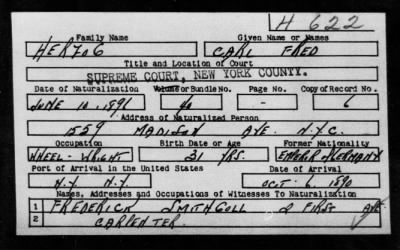 H 622
Family Name Given Name or Names
HERZOG CARL FRED
Title and Location of Court
SUPREME COURT, NEW YORK COUNTY.
Date of Naturalization Volume or Bundle No. Page No. Copy of Record No.
JUNE 10, 1896 40 - 6
Address of Naturalized Person
1559 MADISON AVE. N.Y.C.
Occupation Birth Date or Age Former Nationality
WHEEL-WRIGHT 31 YRS. GERMANY
Port of Arrival in the United States Date of Arrival
N.Y. N.Y. OCT. 6, 1890
Names, Addresses and Occupations of Witnesses To Naturalization
1 FREDERICK 2 FIRST AVE.
2 CARPENTER